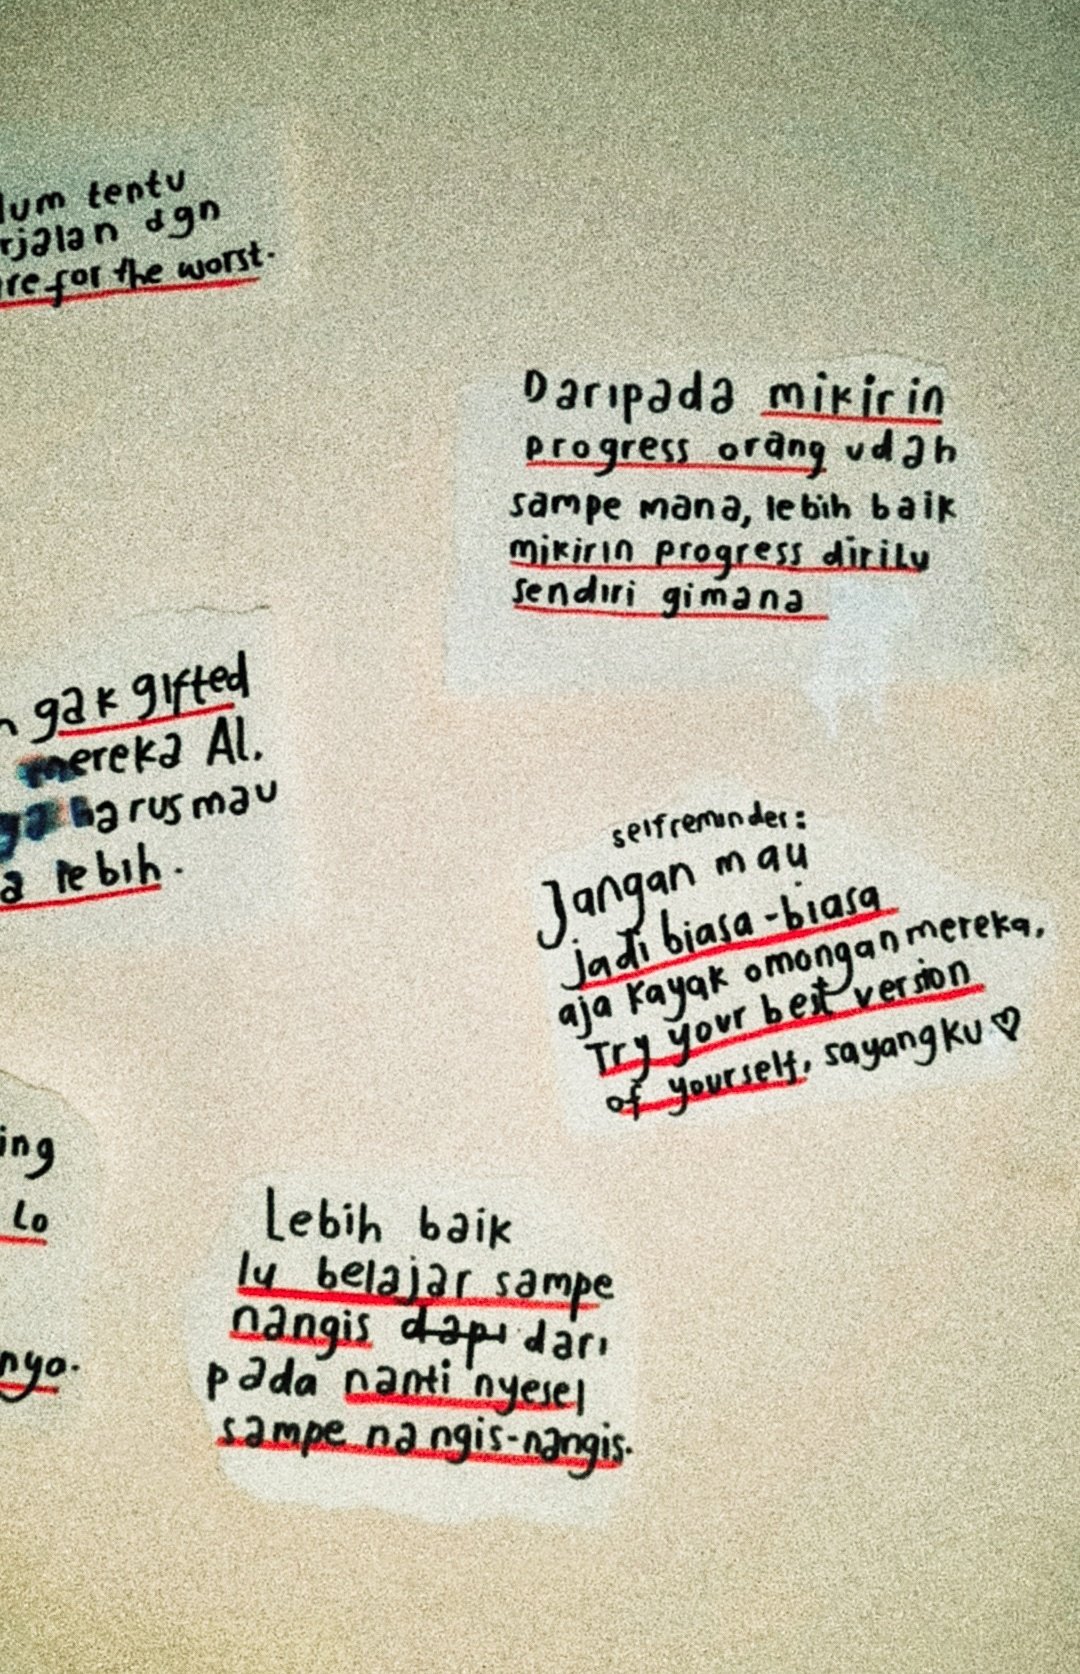 lum tentu
rjalan dgn
re for the worst.
Daripada mikirin
progress orang udah
sampe mana, lebih baik
mikirin progress dirilu
sendiri gimana
gak gifted
mereka Al.
harus mau
a lebih.
selfreminder:
Jangan mau
jadi biasa-biasa
aja kayak omongan mereka,
Try your best version
of yourself, sayangku ♡
ing
lo
nya.
Lebih baik
lu belajar sampe
nangis dapi dari
pada nanti nyesel
sampe nangis-nangis.